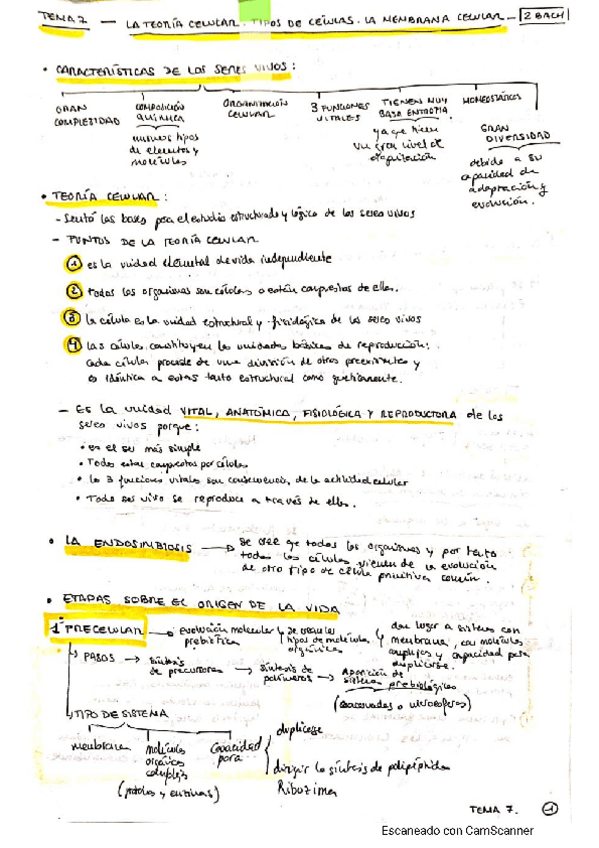 TEMA 7 - LA TEORÍA CELULAR. TIPOS DE CÉLULAS. LA MEMBRANA CELULAR - 2 BACH
• CARACTERÍSTICAS DE LOS SERES VIVOS:
GRAN COMPLEJIDAD
COMPOSICIÓN QUÍMICA
mismos tipos de elementos y moléculas
ORGANIZACIÓN CELULAR
3 FUNCIONES VITALES
TIENEN MUY BAJA ENTROPIA
ya que tienen un gran nivel de organización
HOMEOSTÁTICOS
GRAN DIVERSIDAD
debido a su capacidad de adaptación y evolución.
• TEORÍA CELULAR:
- Sentó las bases para el estudio estructurado y lógico de los seres vivos
- PUNTOS DE LA TEORÍA CELULAR
1 es la unidad elemental de vida independiente
2 todos los organismos son células o están compuestos de ellas.
3 la célula es la unidad estructural y fisiológica de los seres vivos
4 las células constituyen las unidades básicas de reproducción:
cada célula procede de una división de otras preexistentes y
es idéntica a estas tanto estructural como genéticamente.
- Es la unidad VITAL, ANATÓMICA, FISIOLÓGICA Y REPRODUCTORA de los
seres vivos porque:
• es el ser más simple
• Todos están compuestos por células
• las 3 funciones vitales son consecuencia de la actividad celular
• Todo ser vivo se reproduce a través de ellas.
• LA ENDOSIMBIOSIS → se cree que todos los organismos y por tanto
todas las células vienen de la evolución
de otro tipo de célula primitiva común.
• ETAPAS SOBRE EL ORIGEN DE LA VIDA
1º PRECELULAR → Evolución molecular prebiótica
tipos de moléculas orgánicas
dan lugar a sistemas con membrana, con moléculas complejas y capacidad para duplicarse.
PASOS → síntesis de precursores → síntesis de polímeros → Aparición de sistemas prebiológicos
(coacervados o microesferas)
TIPO DE SISTEMA
membrana
moléculas orgánicas complejas
(proteínas y enzimas)
Capacidad para
duplicarse
dirigir la síntesis de polipéptidos
Ribozimas
TEMA 7. 1
Escaneado con CamScanner